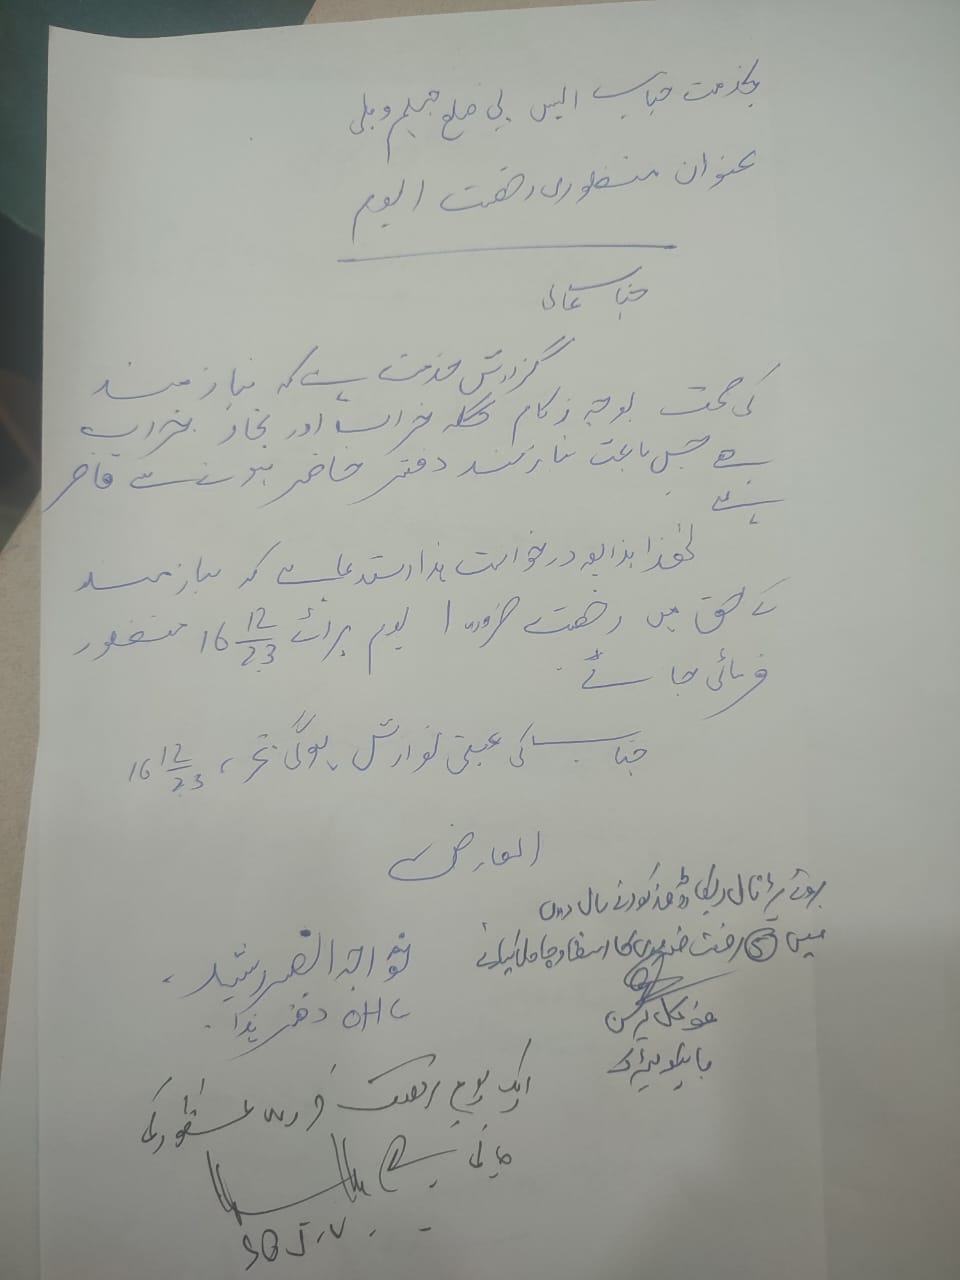 بخدمت جناب ایس پی ضلع جہلم ویلی
عنوان منظوری رخصت ایوم
جناب عالی
گزارش خدمت ہے کہ نیاز مند
کی صحت بوجہ زکام گلہ خراب اور بخار خراب
ہے جس باعث نیازمند دفتر حاضر ہونے سے قاصر
ہے
لھذا بذریعہ درخواست ہذا استدعا ہے کہ نیاز مند
کے حق میں رخصت ضروری 1 یوم برائے 16 12/23 منظور
فرمائی جائے
جناب کی عین نوازش ہوگی تحریر، 16 12/23
العارض
خواجہ
دفتر ہذا OHC
بروئے ریکارڈ مذکور نے سال رواں
میں رخصت ضروری کا استفادہ حاصل کیا ہے
ایک یوم رخصت منظور کی
جاتی ہے